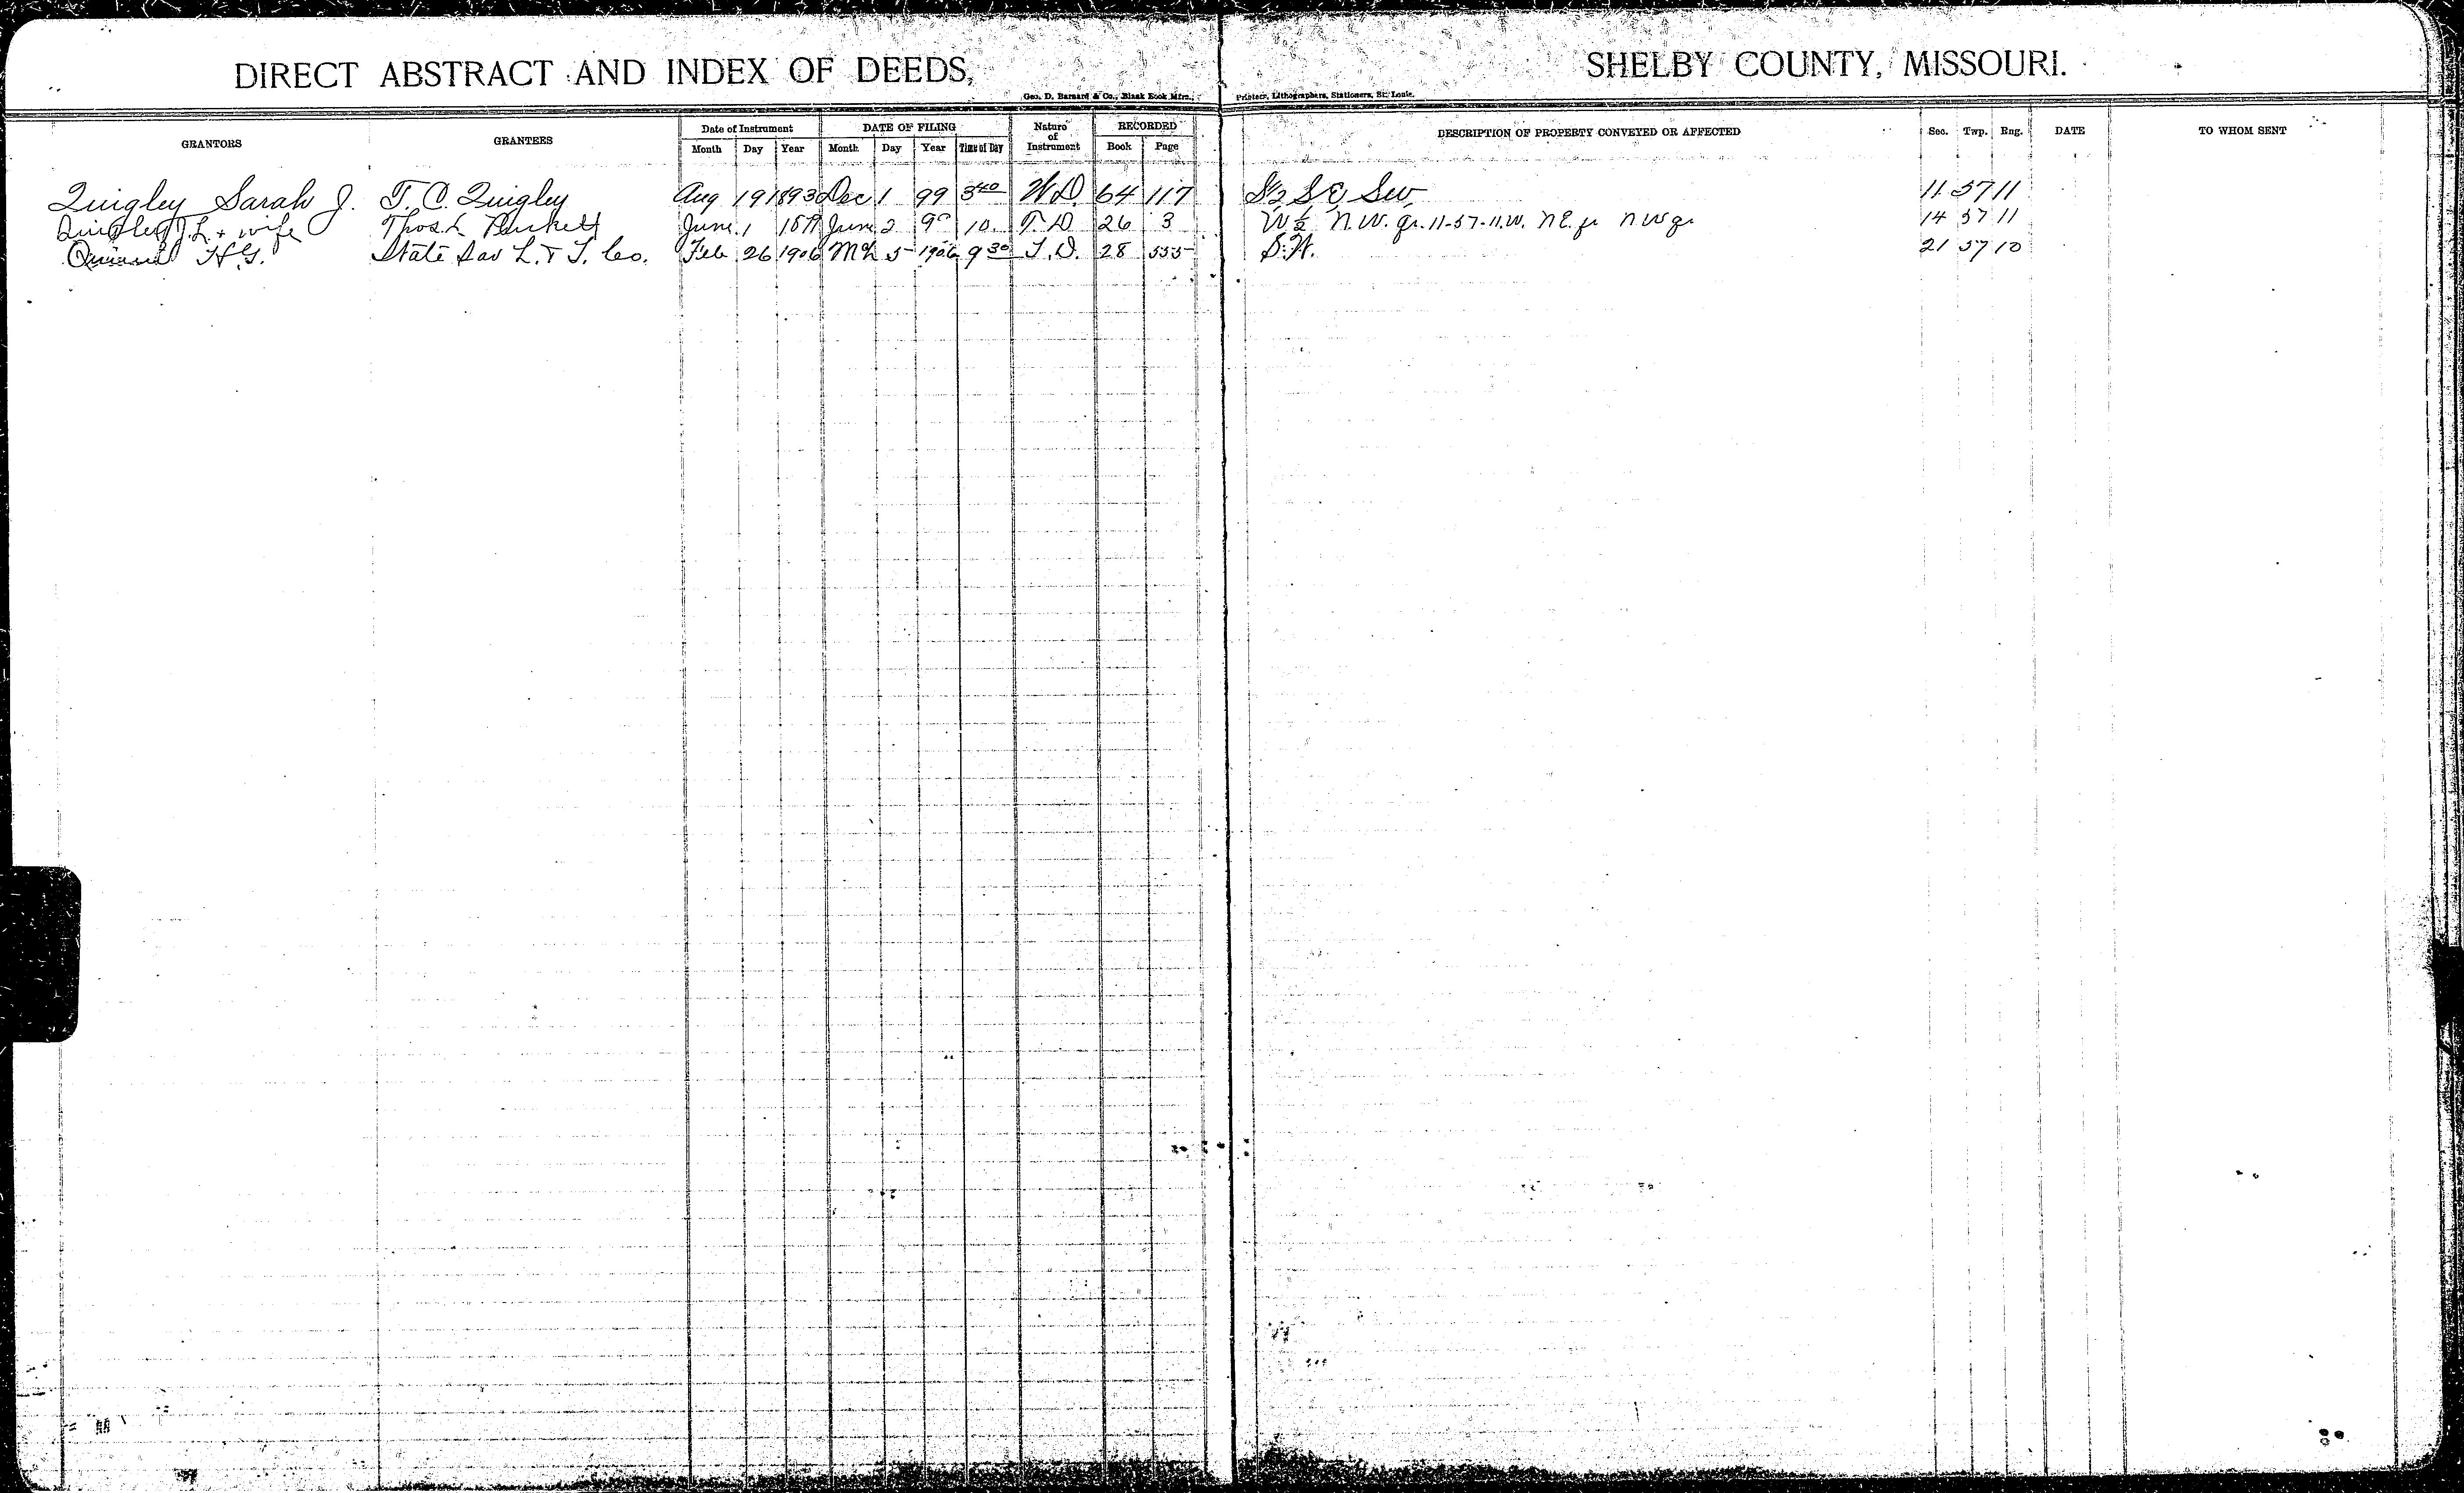 DIRECT ABSTRACT AND INDEX OF DEEDS, SHELBY COUNTY, MISSOURI.
Geo. D. Barnard & Co., Blank Book Mfrs., Printers, Lithographers, Stationers, St. Louis.
GRANTORS GRANTEES Date of Instrument Month Day Year DATE OF FILING Month Day Year Time of Day Nature of Instrument RECORDED Book Page DESCRIPTION OF PROPERTY CONVEYED OR AFFECTED Sec. Twp. Rng. DATE TO WHOM SENT
Quigley Sarah J. T. C. Quigley Aug 19 1893 Dec 1 99 3 40 W.D. 64 117 S 1/2 S E Sw, 11 57 11
Quigley T. L. + wife Thos. L. June 1 June 2 10 T. D 26 3 W 1/2 N.W. qr. 11-57-11.W. N E qr N W qr 14 57 11
H. G. State Sav L. & T. Co. Feb 26 1906 Mch 5 1906 9 30 T. D. 28 555 S. W. 21 57 10